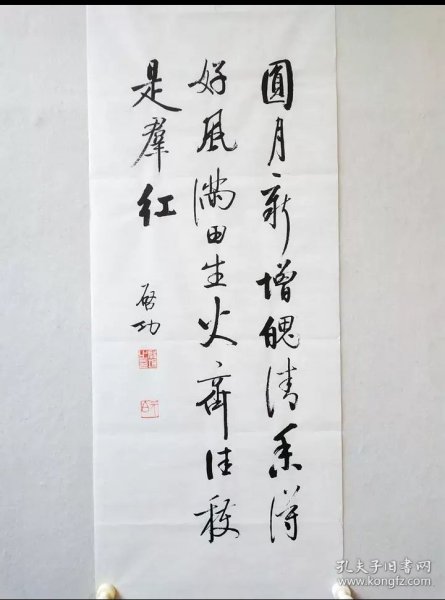 圓月新增魄清香得
好風滿田生火齊佳穫
是羣紅
啟功
孔夫子旧书网
www.kongfz.com